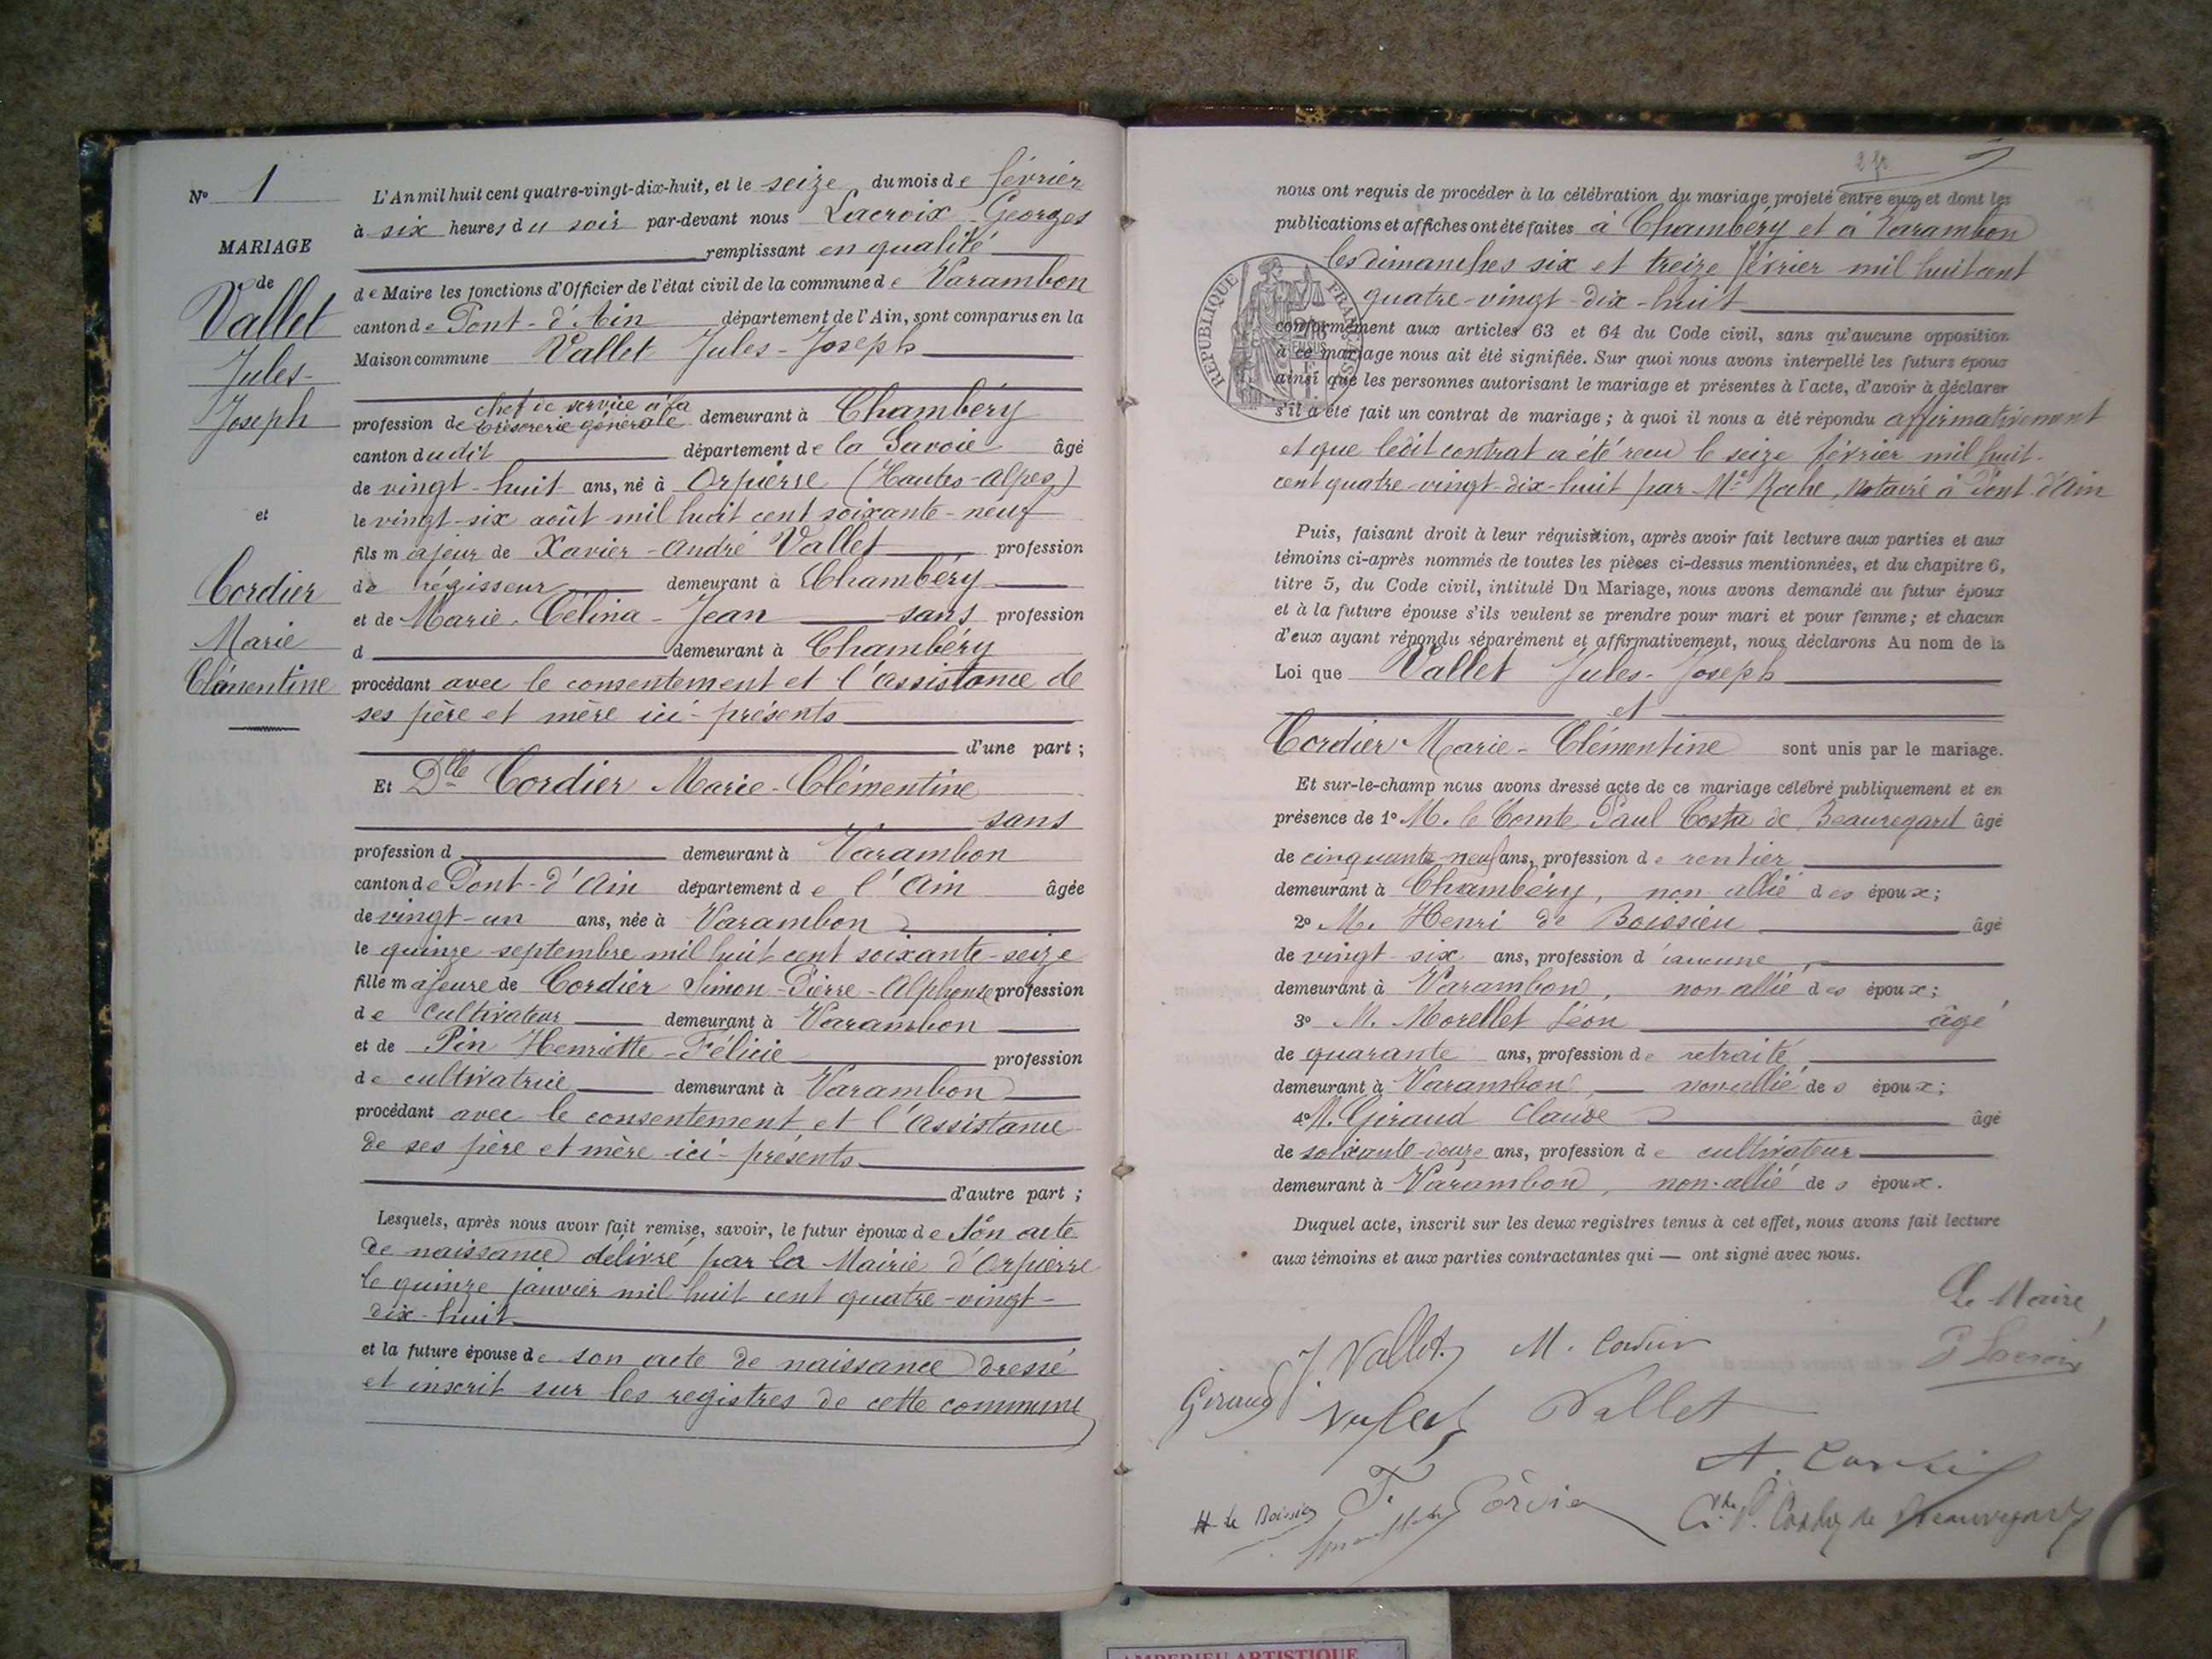 N° 1
MARIAGE
de
Vallet
Jules-
Joseph
et
Cordier
Marie
Clémentine
L'An mil huit cent quatre-vingt-dix-huit, et le seize du mois de février
à six heures du soir par-devant nous Lacroix Georges
remplissant en qualité
de Maire les fonctions d'Officier de l'état civil de la commune de Varambon
canton de Pont-d'Ain département de l'Ain, sont comparus en la
Maison commune Vallet Jules-Joseph
profession de chef de service à la trésorerie générale demeurant à Chambéry
canton dudit département de la Savoie âgé
de vingt-huit ans, né à Orpierre (Hautes-Alpes)
le vingt-six août mil huit cent soixante-neuf
fils majeur de Xavier-André Vallet profession
de régisseur demeurant à Chambéry
et de Marie-Célina-Jean sans profession
d demeurant à Chambéry
procédant avec le consentement et l'assistance de
ses père et mère ici-présents
d'une part ;
Et Dlle Cordier Marie-Clémentine
sans
profession d demeurant à Varambon
canton de Pont-d'Ain département de l'Ain âgée
de vingt-un ans, née à Varambon
le quinze septembre mil huit cent soixante-seize
fille majeure de Cordier Simon-Pierre-Alphonse profession
de cultivateur demeurant à Varambon
et de Pin Henriette-Félicie profession
de cultivatrice demeurant à Varambon
procédant avec le consentement et l'assistance
de ses père et mère ici-présents
d'autre part ;
Lesquels, après nous avoir fait remise, savoir, le futur époux de son acte
de naissance délivré par la Mairie d'Orpierre
le quinze janvier mil huit cent quatre-vingt-
dix-huit
et la future épouse de son acte de naissance dressé
et inscrit sur les registres de cette commune
nous ont requis de procéder à la célébration du mariage projeté entre eux et dont les
publications et affiches ont été faites à Chambéry et à Varambon
les dimanches six et treize février mil huit cent
quatre-vingt-dix-huit
RÉPUBLIQUE FRANÇAISE
conformément aux articles 63 et 64 du Code civil, sans qu'aucune opposition
à ce mariage nous ait été signifiée. Sur quoi nous avons interpellé les futurs époux
ainsi que les personnes autorisant le mariage et présentes à l'acte, d'avoir à déclarer
s'il a été fait un contrat de mariage ; à quoi il nous a été répondu affirmativement
et que ledit contrat a été reçu le seize février mil huit-
cent quatre-vingt-dix-huit par Me Roche, Notaire à Pont-d'Ain
Puis, faisant droit à leur réquisition, après avoir fait lecture aux parties et aux
témoins ci-après nommés de toutes les pièces ci-dessus mentionnées, et du chapitre 6,
titre 5, du Code civil, intitulé Du Mariage, nous avons demandé au futur époux
et à la future épouse s'ils veulent se prendre pour mari et pour femme ; et chacun
d'eux ayant répondu séparément et affirmativement, nous déclarons Au nom de la
Loi que Vallet Jules-Joseph
et
Cordier Marie-Clémentine sont unis par le mariage.
Et sur-le-champ nous avons dressé acte de ce mariage célébré publiquement et en
présence de 1° M. le Comte Paul Costa de Beauregard âgé
de cinquante-neuf ans, profession de rentier
demeurant à Chambéry, non allié des époux ;
2° M. Henri de Boissieu âgé
de vingt-six ans, profession d'aucune
demeurant à Varambon, non allié des époux ;
3° M. Morellet Léon âgé
de quarante ans, profession de retraité
demeurant à Varambon, non allié des époux ;
4° M. Giraud Claude âgé
de soixante-douze ans, profession de cultivateur
demeurant à Varambon, non-allié des époux.
Duquel acte, inscrit sur les deux registres tenus à cet effet, nous avons fait lecture
aux témoins et aux parties contractantes qui — ont signé avec nous.
Le Maire,
J. Vallet M. Cordier
G Lacroix
Giraud
Vallet
A. Cordier
H de Boissieu
Cte P. Costa de Beauregard
AMPERIEU ARTISTIQUE